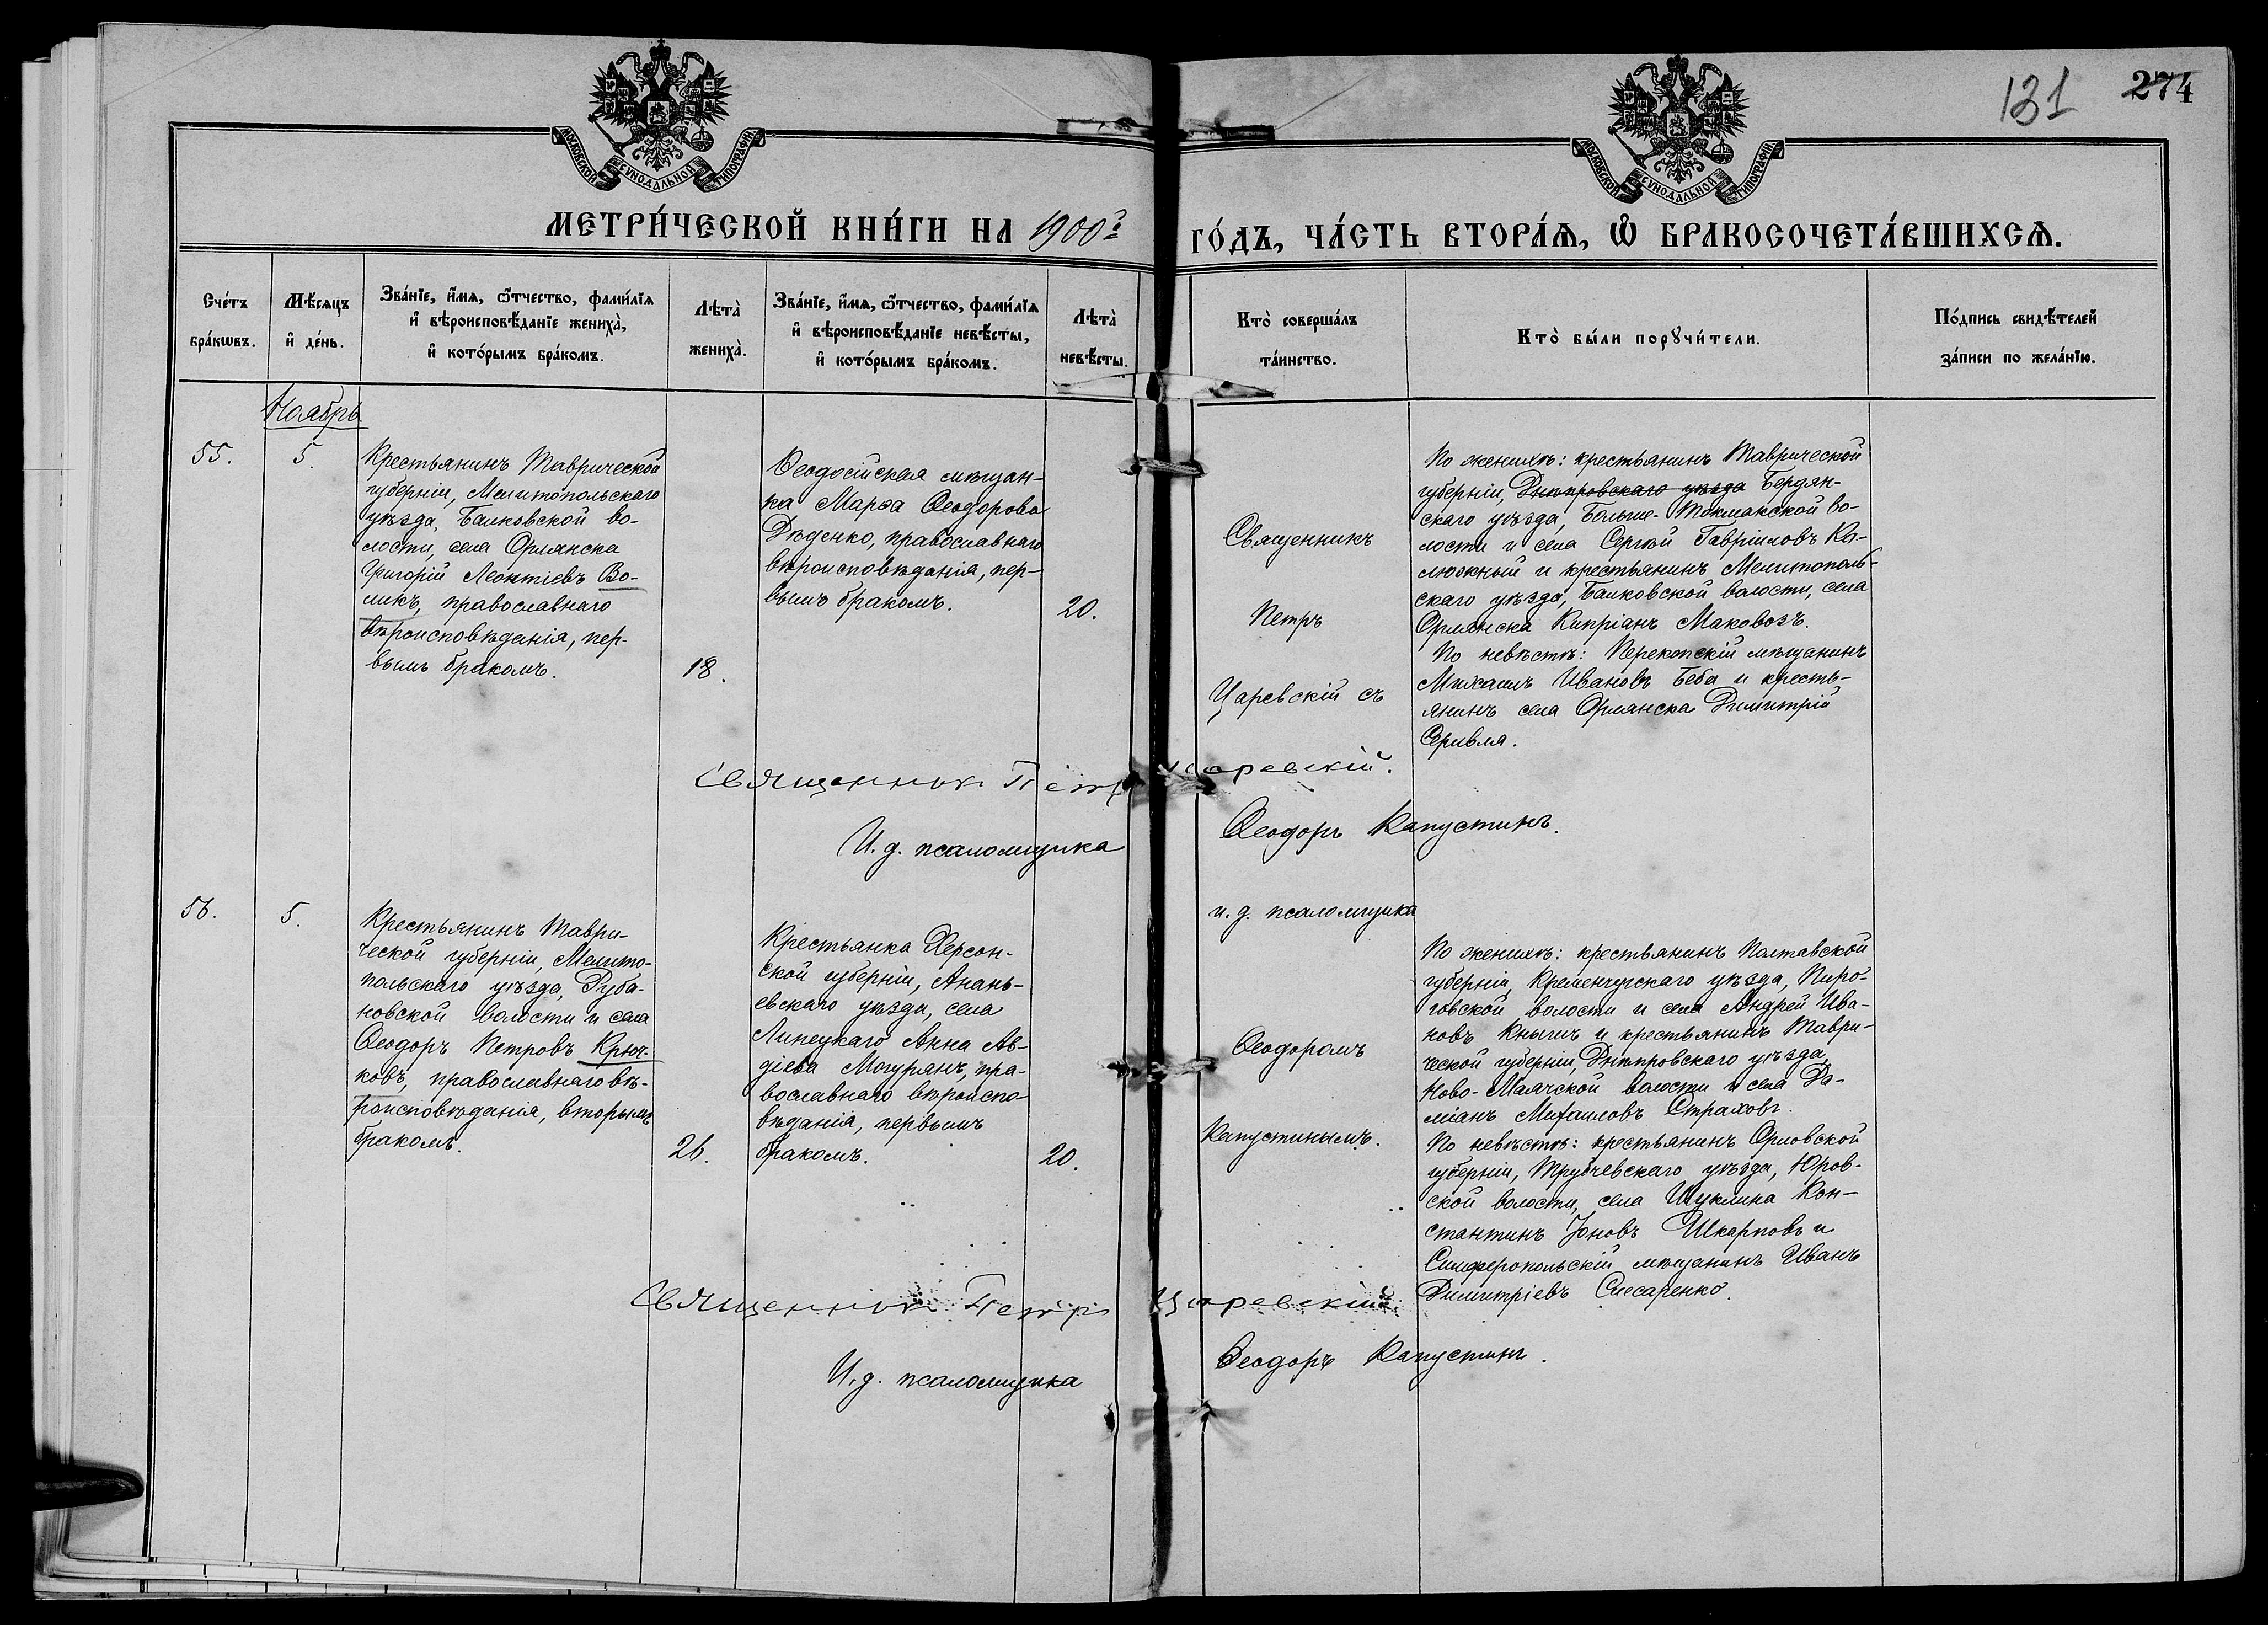 131 274
МОСКОВСКОЙ СѴНОДАЛЬНОЙ ТИПОГРАФІИ
МОСКОВСКОЙ СѴНОДАЛЬНОЙ ТИПОГРАФІИ
МЕТРИ́ЧЕСКОЙ КНИ́ГИ НА 1900й ГО́ДЪ, ЧА́СТЬ ВТОРА́Ѧ, Ѽ БРАКОСОЧЕТА́ВШИХСѦ.
Сче́тъ
бра́кѡвъ.
Мѣ́сѧцъ
и҆ де́нь.
Зва́нїе, и҆́мѧ, ѻ҆́тчество, фами́лїѧ
и҆ вѣроисповѣ́данїе жениха̀,
и҆ кото́рымъ бра́комъ.
Лѣта̀
жениха̀.
Зва́нїе, и҆́мѧ, ѻ҆́тчество, фами́лїѧ
и҆ вѣроисповѣ́данїе невѣ́сты,
и҆ кото́рымъ бра́комъ.
Лѣта̀
невѣ́сты.
Кто̀ соверша́лъ
та́инство.
Кто̀ бы́ли порꙋчи́тели.
По́дпись свидѣ́телей
за́писи по жела́нїю.
Ноябрь
55.
5.
Крестьянинъ Таврической
губерніи, Мелитопольскаго
уѣзда, Балковской во-
лости, села Орлянска
Григорій Леонтіевъ Во-
ликъ, православнаго
вѣроисповѣданія, пер-
вымъ бракомъ.
18.
Ѳеодосійская мѣщан-
ка Марѳа Ѳеодорова
Дѣденко, православнаго
вѣроисповѣданія, пер-
вымъ бракомъ.
20.
Священникъ
Петръ
Царевскій съ
По женихѣ: крестьянинъ Таврической
губерніи, Днѣпровскаго уѣзда Бердян-
скаго уѣзда, Больше-Токмакской во-
лости и села Сергѣй Гавріиловъ Ка-
люжный и крестьянинъ Мелитополь-
скаго уѣзда, Балковской волости, села
Орлянска Кипріанъ Маковозъ.
По невѣстѣ: Перекопскій мѣщанинъ
Михаилъ Ивановъ Беба и кресть-
янинъ села Орлянска Димитрій
Сривля.
Священникъ Петръ Царевскій.
И. д. псаломщика Ѳеодоръ Капустинъ.
56.
5.
Крестьянинъ Таври-
ческой губерніи, Мелито-
польскаго уѣзда, Руба-
новской волости и села
Ѳеодоръ Петровъ Крюч-
ковъ, православнаго вѣ-
роисповѣданія, вторымъ
бракомъ.
26.
Крестьянка Херсон-
ской губерніи, Анань-
евскаго уѣзда, села
Липецкаго Анна Ав-
діева Могурянъ, пра-
вославнаго вѣроиспо-
вѣданія, первымъ
бракомъ.
20.
и. д. псаломщика
Ѳеодоромъ
Капустинымъ.
По женихѣ: крестьянинъ Полтавской
губерніи, Кременчугскаго уѣзда, Пиро-
говской волости и села Андрей Ива-
новъ Кнышъ и крестьянинъ Таври-
ческой губерніи, Днѣпровскаго уѣзда,
Ново-Маячской волости и села Да-
міанъ Михаиловъ Страховъ.
По невѣстѣ: крестьянинъ Орловской
губерніи, Трубчевскаго уѣзда, Юров-
ской волости, села Шуклина Кон-
стантинъ Іоновъ Шкарповъ и
Симферопольскій мѣщанинъ Иванъ
Димитріевъ Слесаренко.
Священникъ Петръ Царевскій.
И. д. псаломщика Ѳеодоръ Капустинъ.